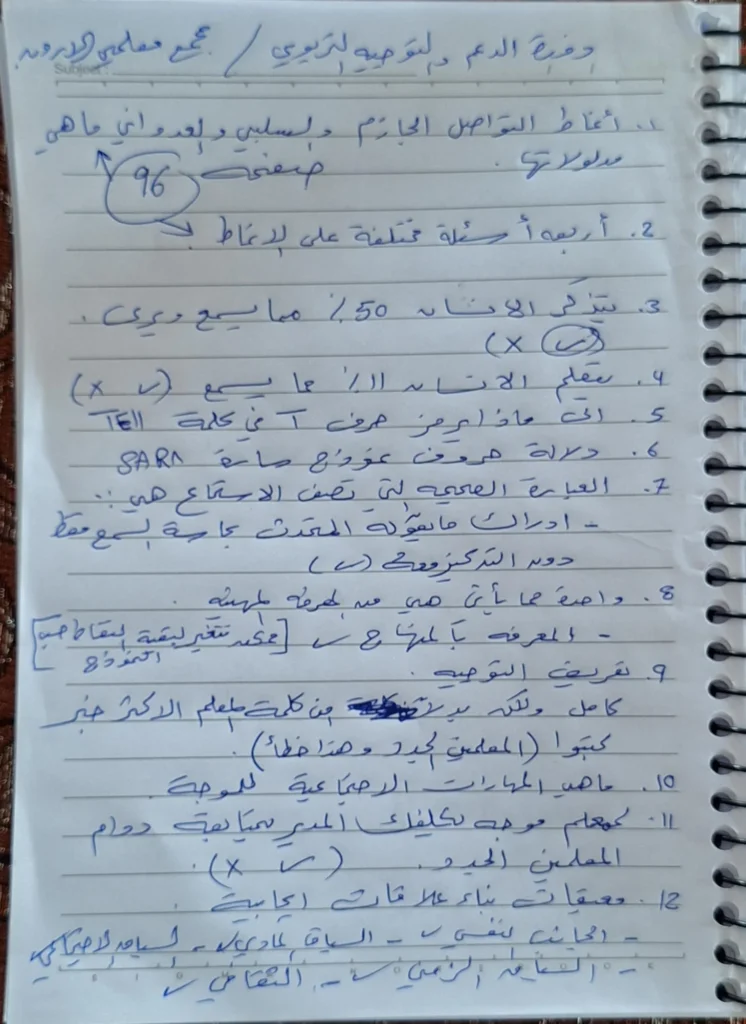 وحدة الدعم والتوجيه التربوي / مجمع معلمي الاردن
Subject:
1. أنماط التواصل الحازم والسلبي والعدواني ماهي
مدلولاتها. صفحة 96
2. أربعة أسئلة مختلفة على الانماط
3. يتذكر الانسان 50٪ مما يسمع ويرى.
(✓ x)
4. يتعلم الانسان 11٪ مما يسمع (✓ x)
5. الى ماذا يرمز حرف T في كلمة TEll
6. دلالة حروف نموذج سارة SARA
7. العبارة الصحيحه التي تصف الاستماع هي:
- ادراك مايقوله المتحدث بحاسة السمع فقط
دون التركيز معه (✓)
8. واحدة مما يأتي هي من المعرفه المهنيه.
- المعرفه بالمنهاج ✓ [ممكن تتغير لبقية النقاط حسب
النموذج]
9. تعريف التوجيه.
كامل ولكن بدلا من كلمة المعلم الاكثر خبره
كتبوا (المعلمين الجدد وهذا خطأ).
10. ماهي المهارات الاجتماعية للموجة.
11. كمعلم موجه يكلفك المدير بمتابعة دوام
المعلمين الجدد. (✓ x).
12. معيقات بناء علاقات ايجابية
- الجانب النفسي ✓ - السياق المادي ✓ - السياق الاجتماعي ✓
- السياق الزمني ✓ - الثقافي ✓